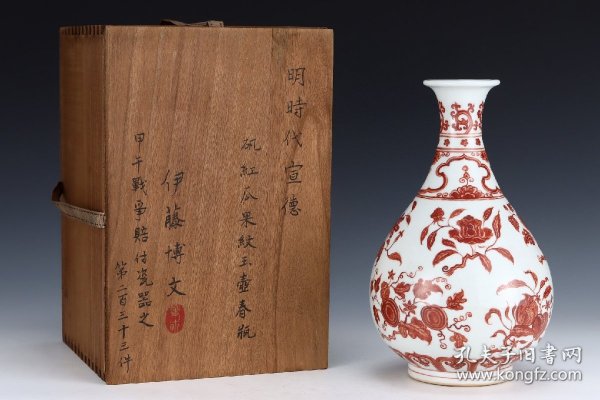 明時代宣德
矾紅瓜果紋玉壺春瓶
伊藤博文
甲午戰爭賠付瓷器之
第二百三十三件
孔夫子旧書网
www.kongfz.com